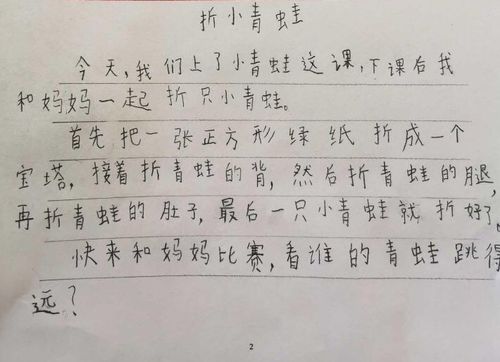 折小青蛙
今天,我们上了小青蛙这课,下课后我
和妈妈一起折只小青蛙。
首先把一张正方形绿纸折成一个
宝塔,接着折青蛙的背,然后折青蛙的腿,
再折青蛙的肚子,最后一只小青蛙就折好了。
快来和妈妈比赛,看谁的青蛙跳得
远?
2